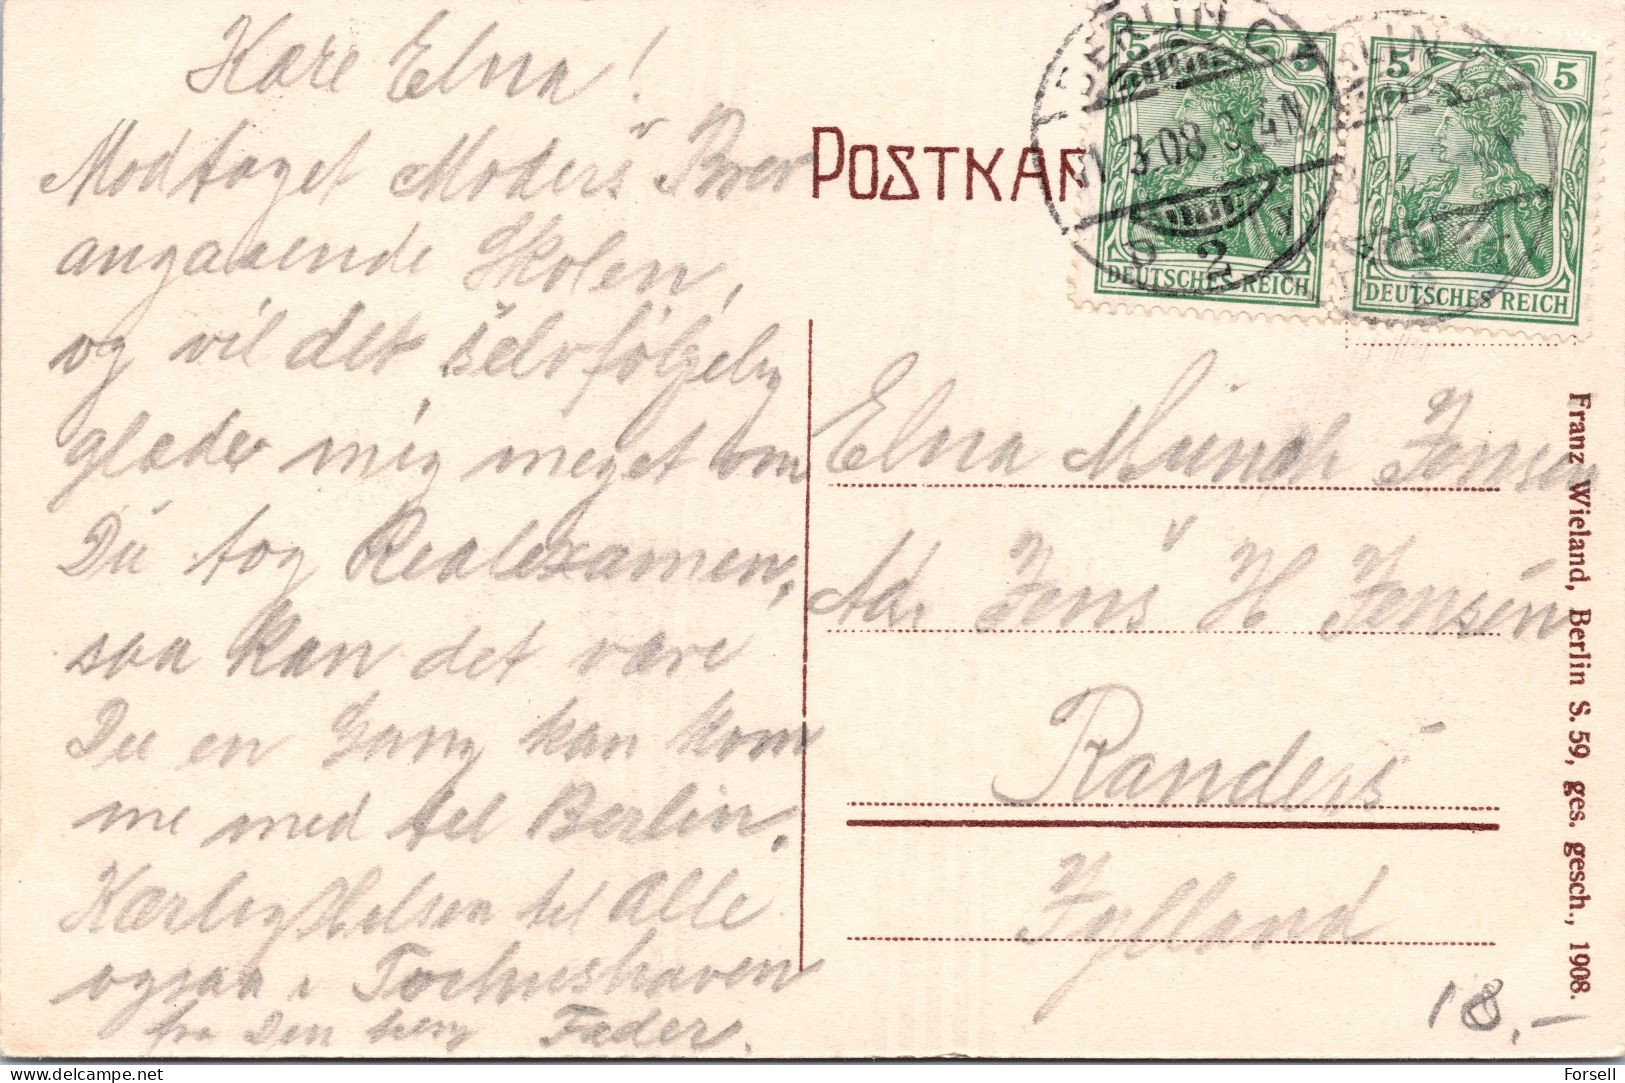 Kære Elna!
Modtaget Moders Brev
angaaende Skolen,
og vil det selvfölgelig
glæder mig meget om
Du tog Realexamen,
saa kan det være
Du en Gang kan kom
me med til Berlin.
Kærlig Helsen til Alle
ogsaa i
fra Din Fader.
POSTKAR
BERLIN C
1.3.08.3-4N
2
5 5
DEUTSCHES REICH
5 5
DEUTSCHES REICH
Elna Münch Jensen
Adr Jens H Jensen
Randers
Jylland
Franz Wieland, Berlin S. 59, ges. gesch., 1908.
18,-
www.delcampe.net
Forsell